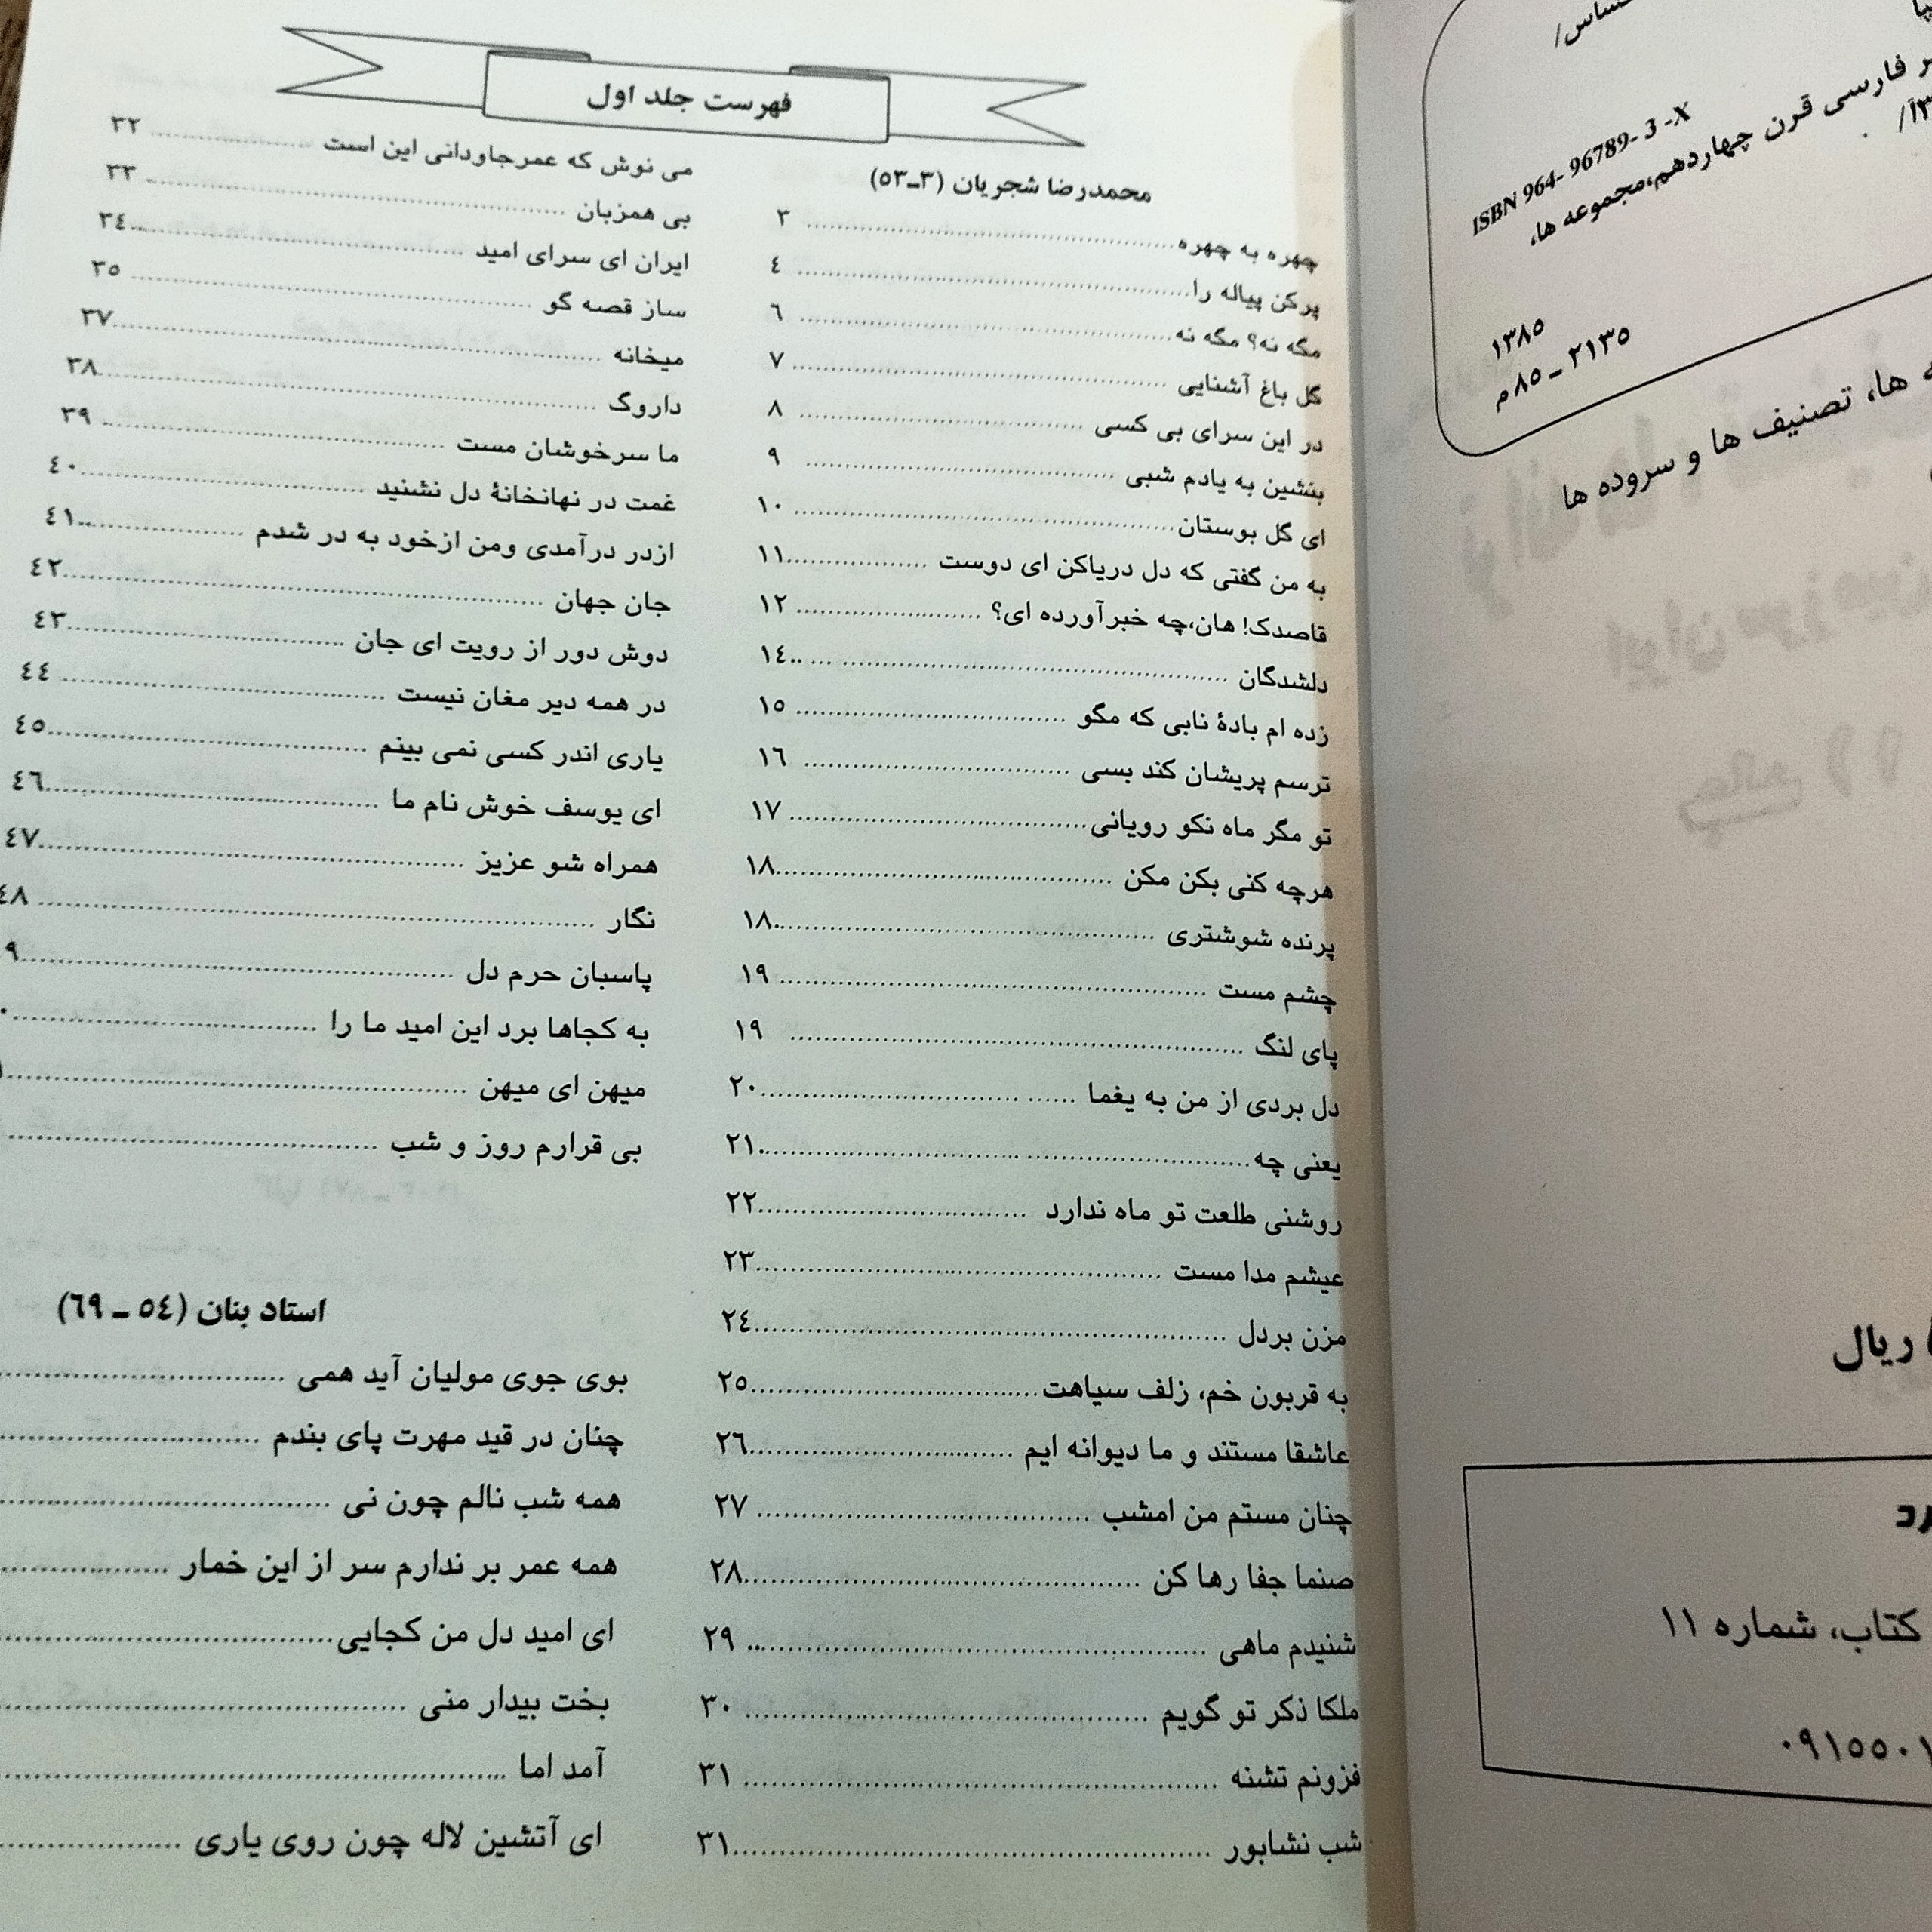 حساس/
فارسی قرن چهاردهم،مجموعه ها،
ISBN 964- 96789- 3 -X
۱۳۸۵
۲۱۳۵ ـ ۸۵ م
ها، تصنیف ها و سروده ها
ریال
کتاب، شماره ۱۱
فهرست جلد اول
محمدرضا شجریان (۳ـ۵۳)
چهره به چهره ........ ۳
پرکن پیاله را ........ ٤
مگه نه؟ مگه نه ........ ٦
گل باغ آشنایی ........ ۷
در این سرای بی کسی ........ ۸
بنشین به یادم شبی ........ ۹
ای گل بوستان ........ ۱۰
به من گفتی که دل دریاکن ای دوست ........ ۱۱
قاصدک! هان،چه خبرآورده ای؟ ........ ۱۲
دلشدگان ........ ۱٤
زده ام بادۀ نابی که مگو ........ ۱۵
ترسم پریشان کند بسی ........ ۱٦
تو مگر ماه نکو رویانی ........ ۱۷
هرچه کنی بکن مکن ........ ۱۸
پرنده شوشتری ........ ۱۸
چشم مست ........ ۱۹
پای لنگ ........ ۱۹
دل بردی از من به یغما ........ ۲۰
یعنی چه ........ ۲۱
روشنی طلعت تو ماه ندارد ........ ۲۲
عیشم مدا مست ........ ۲۳
مزن بردل ........ ۲٤
به قربون خم، زلف سیاهت ........ ۲۵
عاشقا مستند و ما دیوانه ایم ........ ۲٦
چنان مستم من امشب ........ ۲۷
صنما جفا رها کن ........ ۲۸
شنیدم ماهی ........ ۲۹
ملکا ذکر تو گویم ........ ۳۰
فزونم تشنه ........ ۳۱
شب نشابور ........ ۳۱
می نوش که عمرجاودانی این است ........ ۳۲
بی همزبان ........ ۳۳
ایران ای سرای امید ........ ۳٤
ساز قصه گو ........ ۳۵
میخانه ........ ۳۷
داروگ ........ ۳۸
ما سرخوشان مست ........ ۳۹
غمت در نهانخانۀ دل نشنید ........ ٤۰
ازدر درآمدی ومن ازخود به در شدم ........ ٤۱
جان جهان ........ ٤۲
دوش دور از رویت ای جان ........ ٤۳
در همه دیر مغان نیست ........ ٤٤
یاری اندر کسی نمی بینم ........ ٤۵
ای یوسف خوش نام ما ........ ٤٦
همراه شو عزیز ........ ٤۷
نگار ........ ٤۸
پاسبان حرم دل ........ ۹
به کجاها برد این امید ما را ........
میهن ای میهن ........
بی قرارم روز و شب ........
استاد بنان (۵٤ ـ ٦۹)
بوی جوی مولیان آید همی ........
چنان در قید مهرت پای بندم ........
همه شب نالم چون نی ........
همه عمر بر ندارم سر از این خمار ........
ای امید دل من کجایی ........
بخت بیدار منی ........
آمد اما ........
ای آتشین لاله چون روی یاری ........